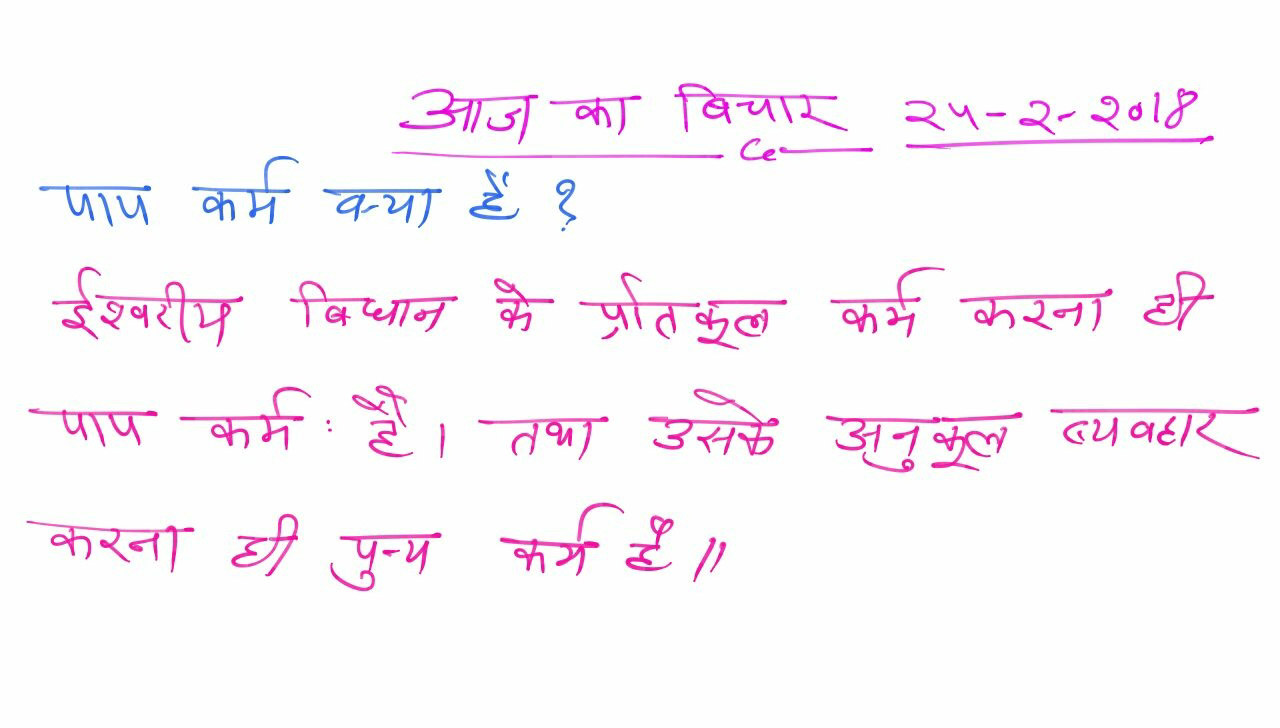 आज का विचार २५-२-२०18
पाप कर्म क्या है ?
ईश्वरीय विधान के प्रतिकूल कर्म करना ही
पाप कर्म : है । तथा उसके अनुकूल व्यवहार
करना ही पुन्य कर्म है ॥